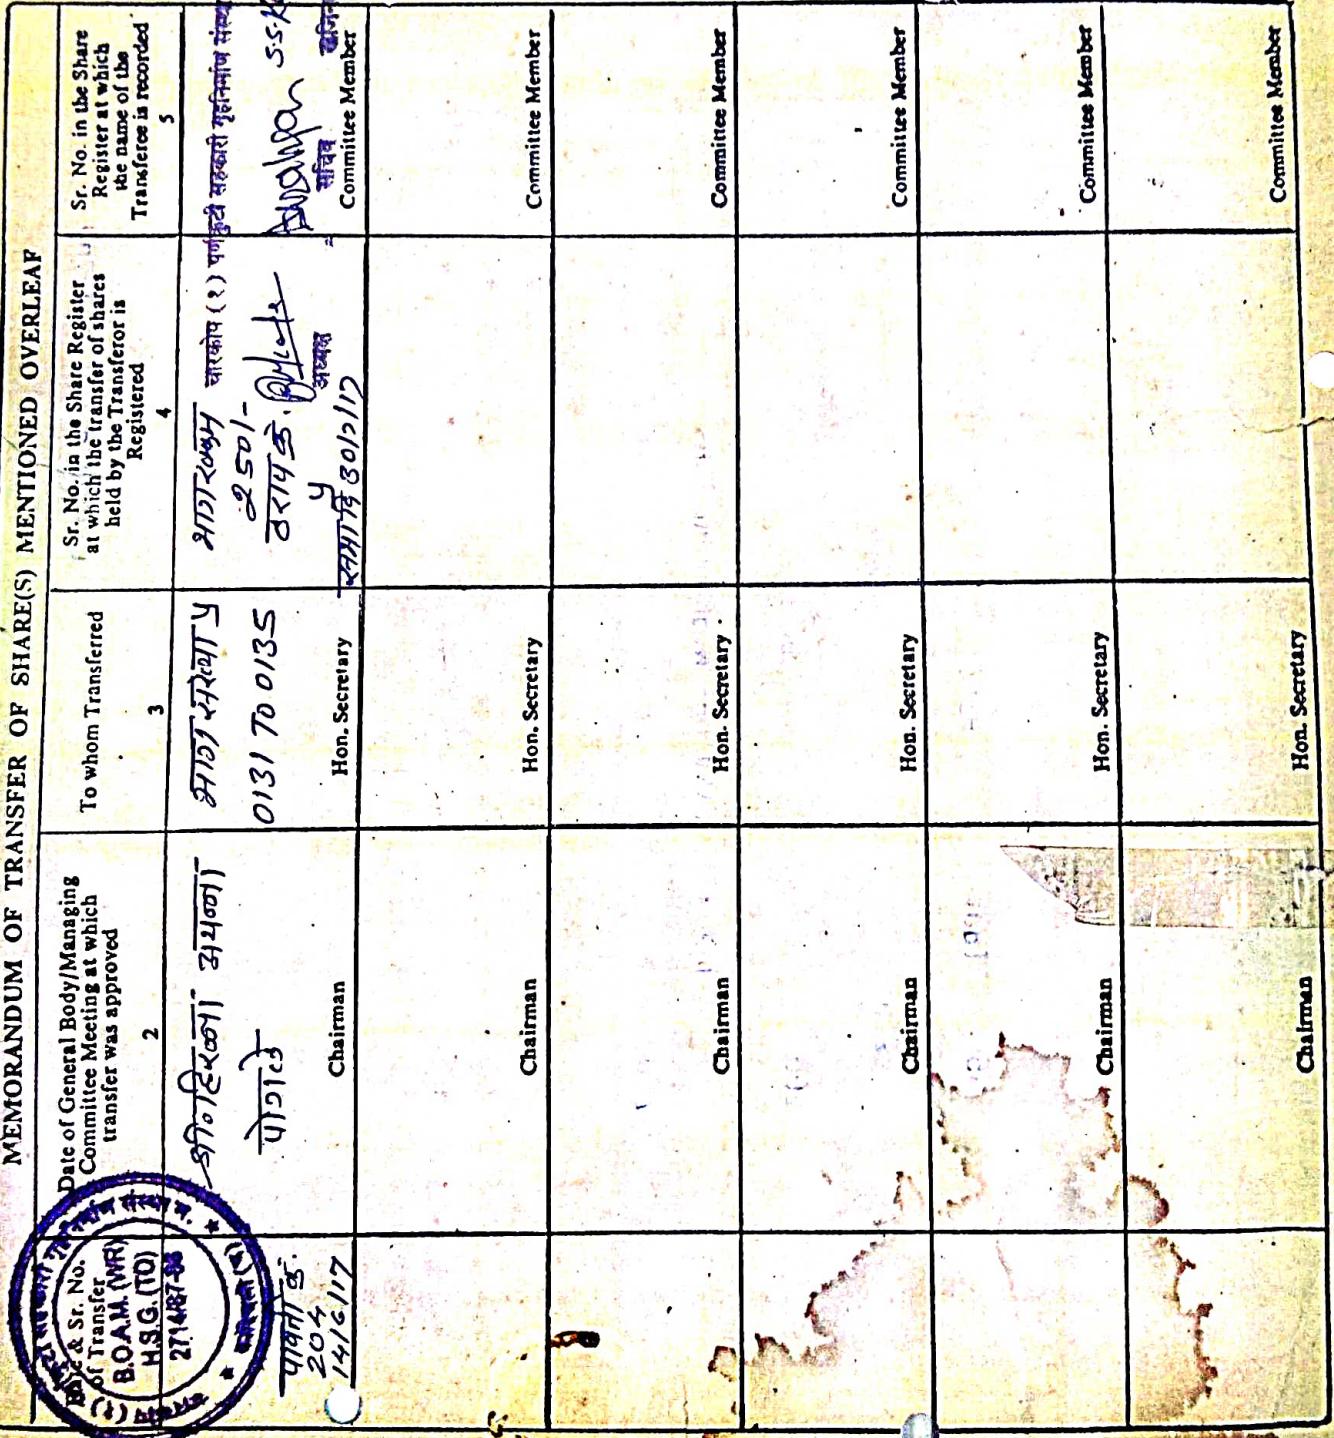 MEMORANDUM OF TRANSFER OF SHARE(S) MENTIONED OVERLEAF
Date & Sr. No.
of Transfer
Date of General Body/Managing
Committee Meeting at which
transfer was approved
2
To whom Transferred
3
Sr. No. in the Share Register
at which the transfer of shares
held by the Transferor is
Registered
4
Sr. No. in the Share
Register at which
the name of the
Transferee is recorded
5
B.O.A.M. (WR)
H.S.G. (TO)
2714/87-88
पावती क्रं.
204
14/6/17
पोगले
Chairman
भाग संख्या 5
0131 TO 0135
Hon. Secretary
भाग रक्कम
250/-
ठराव क्रं.
5
सभा दि 30/7/17
चारकोप (१) पर्णकुटी सहकारी गृहनिर्माण संस्था
अध्यक्ष
सचिव
Committee Member
Chairman
Hon. Secretary
Committee Member
Chairman
Hon. Secretary
Committee Member
Chairman
Hon. Secretary
Committee Member
Chairman
Hon. Secretary
Committee Member
Chairman
Hon. Secretary
Committee Member